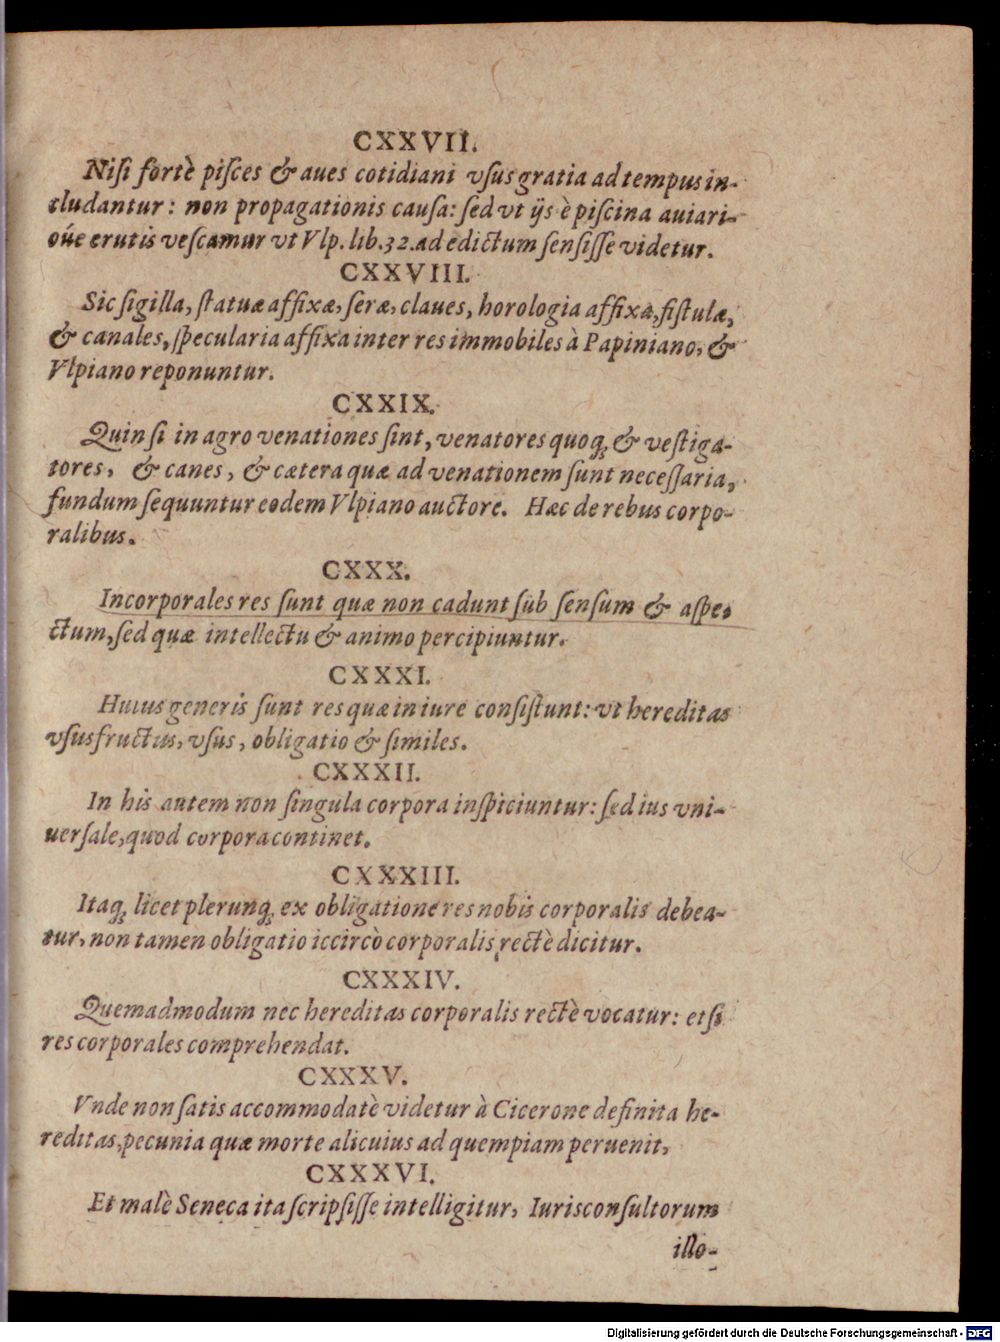 CXXVII.
Niſi fortè piſces & aues cotidiani vſus gratia ad tempus in-
cludantur: non propagationis cauſa: ſed vt ijs è piſcina auiari-
oúe erutis veſcamur vt Vlp. lib. 32. ad edictum ſenſiſſe videtur.
CXXVIII.
Sic ſigilla, ſtatuæ affixæ, ſeræ, claues, horologia affixa, fiſtulæ,
& canales, ſpecularia affixa inter res immobiles à Papiniano, &
Vlpiano reponuntur.
CXXIX.
Quin ſi in agro venationes ſint, venatores quoq; & veſtiga-
tores, & canes, & cætera quæ ad venationem ſunt neceſſaria,
fundum ſequuntur eodem Vlpiano auctore. Hæc de rebus corpo-
ralibus.
CXXX.
Incorporales res ſunt quæ non cadunt ſub ſenſum & aſpe-
ctum, ſed quæ intellectu & animo percipiuntur.
CXXXI.
Huius generis ſunt res quæ in iure conſiſtunt: vt hereditas
vſusfructus, vſus, obligatio & ſimiles.
CXXXII.
In his autem non ſingula corpora inſpiciuntur: ſed ius vni-
uerſale, quod corpora continet.
CXXXIII.
Itaq; licet plerunq; ex obligatione res nobis corporalis debea-
tur, non tamen obligatio iccircò corporalis rectè dicitur.
CXXXIV.
Quemadmodum nec hereditas corporalis rectè vocatur: etſi
res corporales comprehendat.
CXXXV.
Vnde non ſatis accommodatè videtur à Cicerone definita he-
reditas, pecunia quæ morte alicuius ad quempiam peruenit,
CXXXVI.
Et malè Seneca ita ſcripſiſſe intelligitur, Iurisconſultorum
illo-
Digitalisierung gefördert durch die Deutsche Forschungsgemeinschaft - DFG